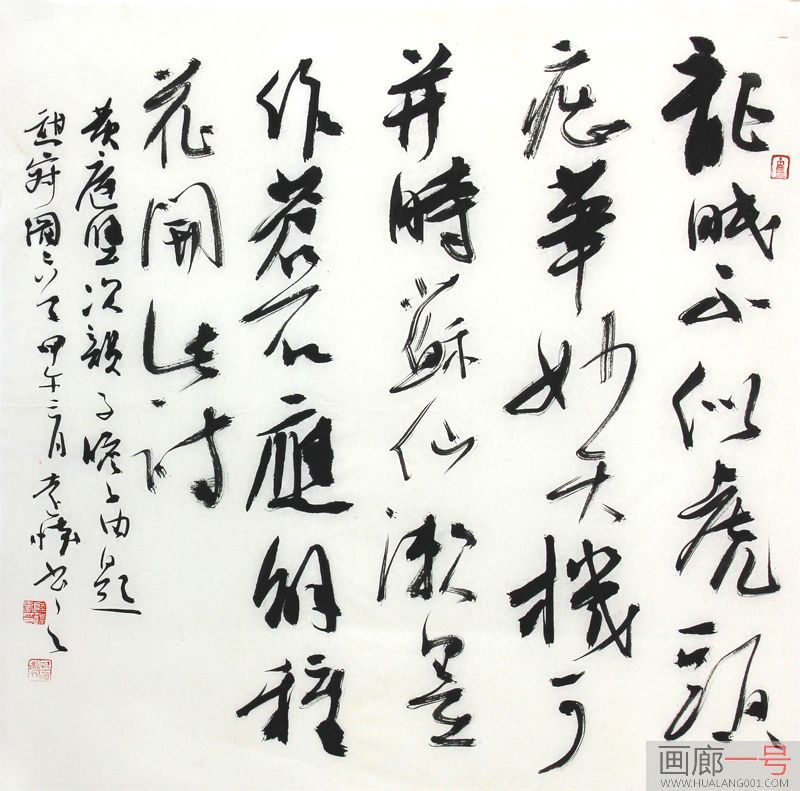 龍眠不似虎頭
痴筆妙天機可
并時蘇仙漱墨
作蒼石應解種
花開此詩
黄庭堅次韻子瞻子由題
憩寂圖二首 甲午三月 書
画廊一号
WWW.HUALANG001.COM